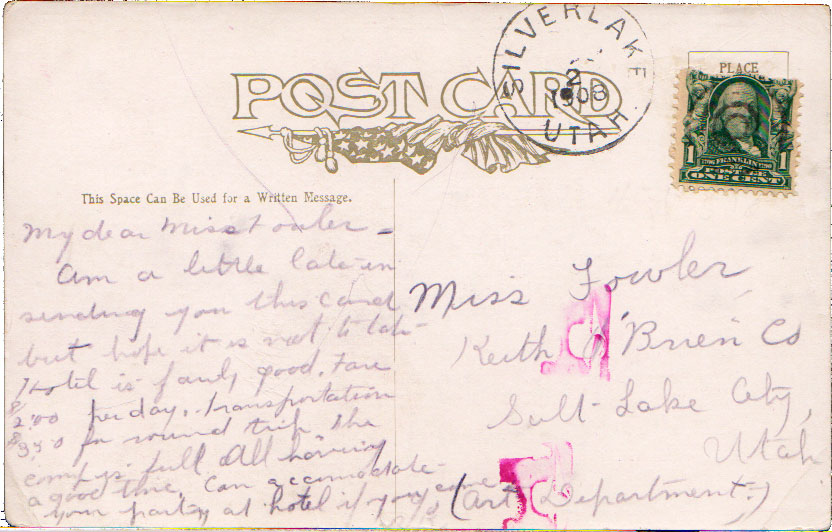 POST CARD
SILVERLAKE
2
1908
UTAH
PLACE
1 FRANKLIN 1
POSTAGE
ONE CENT
This Space Can Be Used for a Written Message.
My dear Miss Fowler –
Am a little late in
sending you this card
but hope it is not to late
Hotel is fairly good. Fare
$2.00 per day. Transportation
$3.50 for round trip The
camp is full All having
a good time. Can accomodate
your party at hotel if you come
Miss Fowler
Keith O'Brien Co
Salt-Lake City,
Utah
(Art Department.)